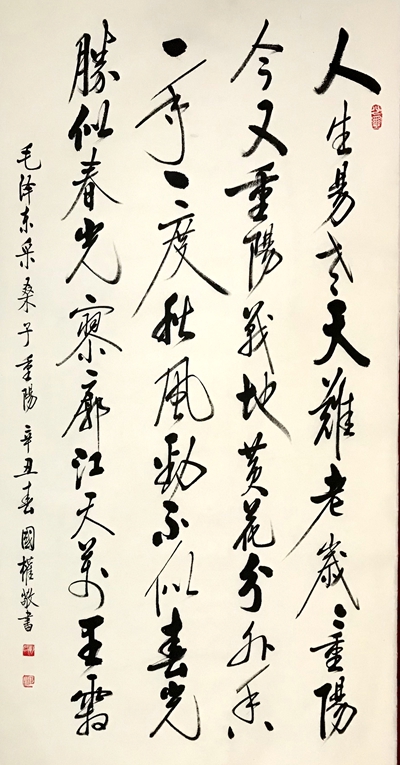 人生易老天難老歲々重陽
今又重陽戰地黃花分外香
一年一度秋風勁不似春光
勝似春光寥廓江天萬里霜
毛澤東采桑子重陽 辛丑春國權敬書